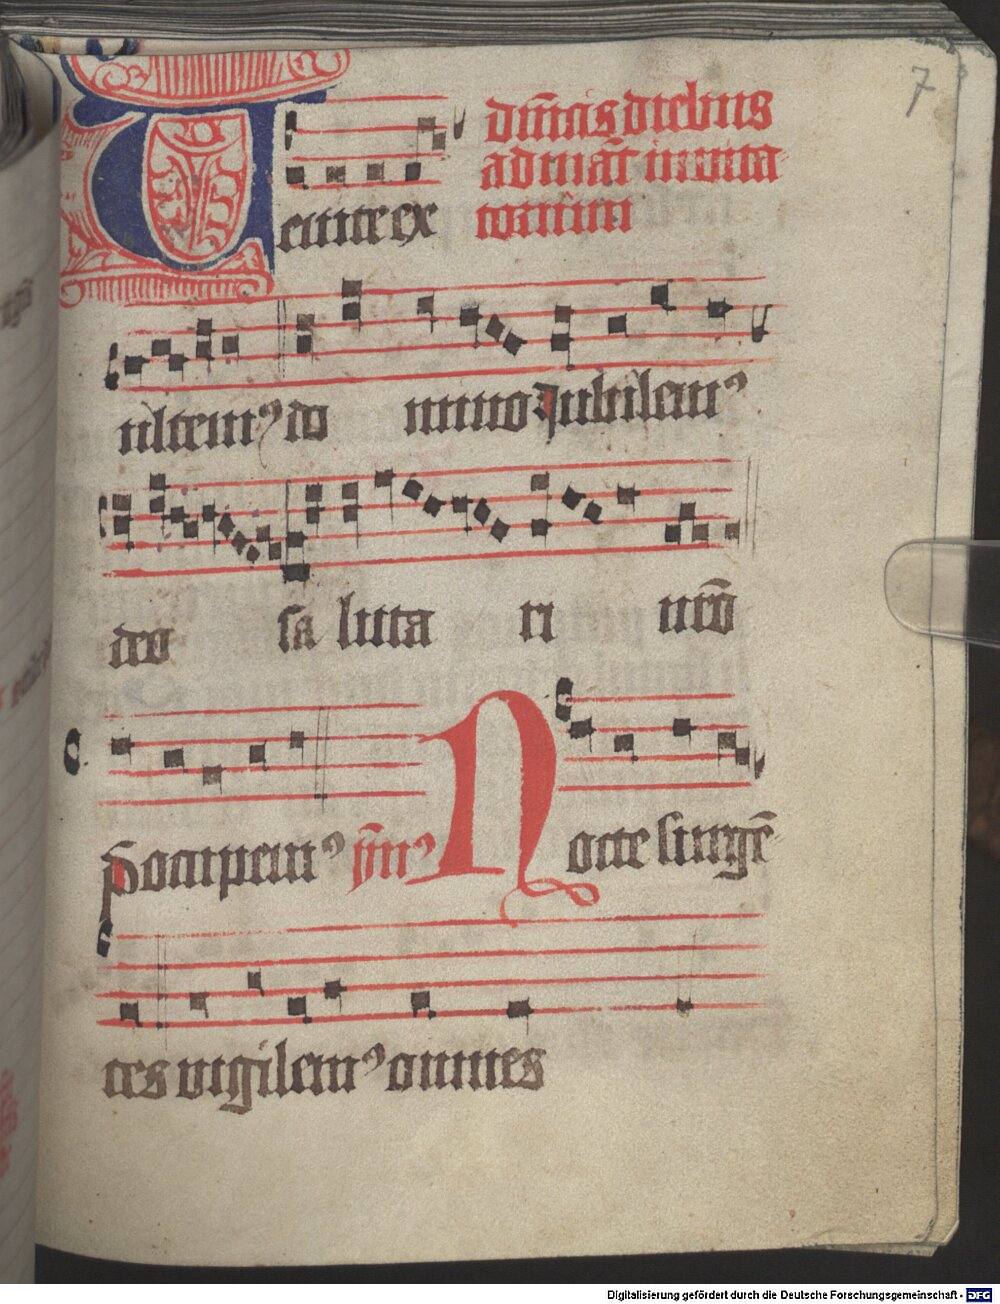 7
dn̄icis diebus
ad mat̄ inuita
toriūm
Uenite ex
ultemꝰ do mino Jubilemꝰ
deo sa luta ri nr̄o
P̄occupemꝰ ym̄nꝰ Nocte surgē
tes uigilemꝰ omnes
Digitalisierung gefördert durch die Deutsche Forschungsgemeinschaft - DFG